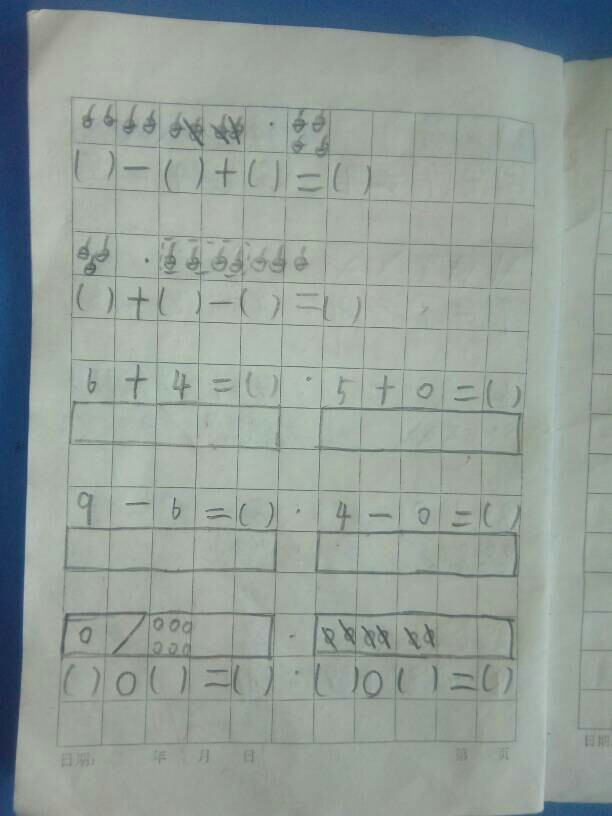 ( ) − ( ) + ( ) = ( )
( ) + ( ) − ( ) = ( )
6 + 4 = ( ) · 5 + 0 = ( )
9 − 6 = ( ) · 4 − 0 = ( )
0
( ) ○ ( ) = ( ) · ( ) ○ ( ) = ( )
日期: 年 月 日 第 页
日期